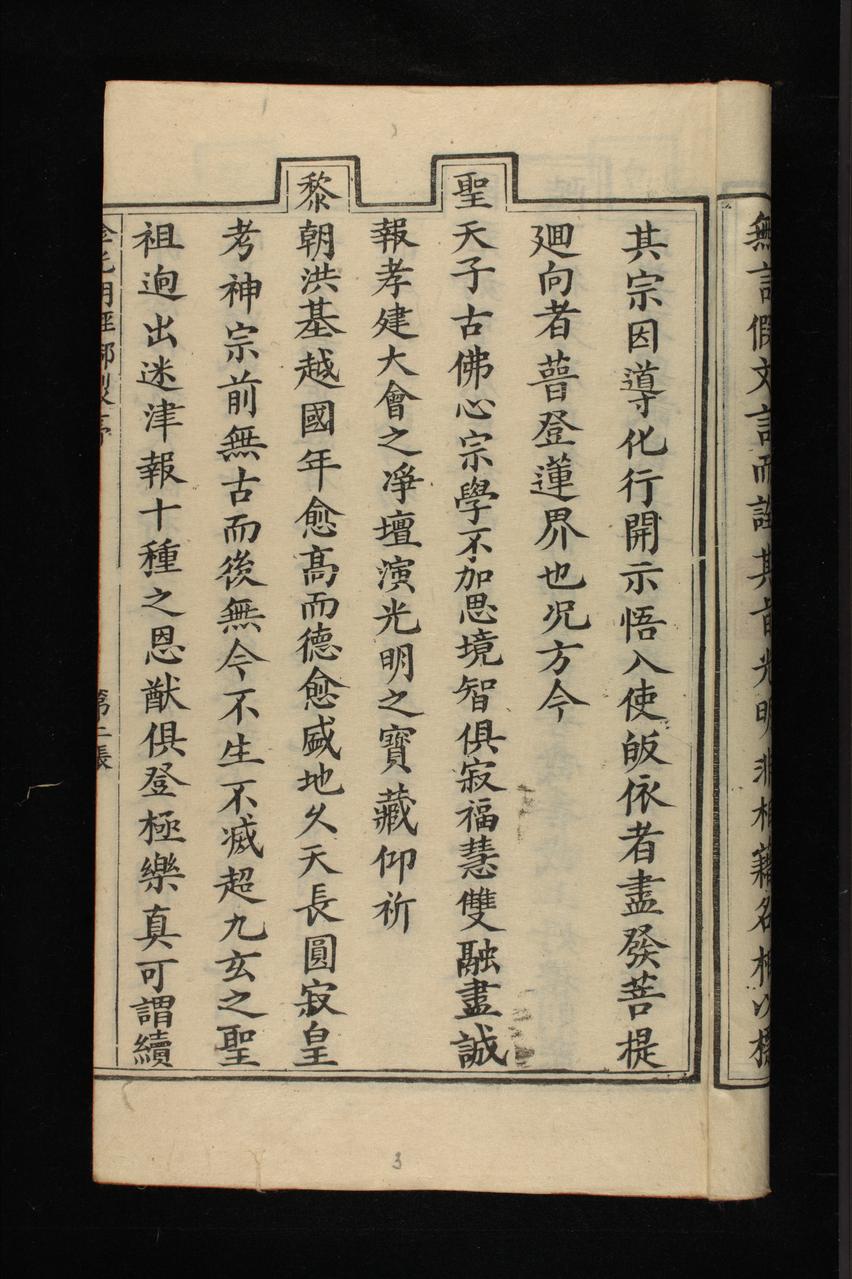 無言假文言而詮其旨光明非相藉名相以標
其宗因導化行開示悟入使皈依者盡發菩提
廻向者普登蓮界也况方今
聖天子古佛心宗學不加思境智俱寂福慧雙融盡誠
報孝建大會之淨壇演光明之寶藏仰祈
黎朝洪基越國年愈高而德愈盛地久天長圓寂皇
考神宗前無古而後無今不生不滅超九玄之聖
祖逈出迷津報十種之恩猷俱登極樂真可謂續
金光明經御製序
第二張
3